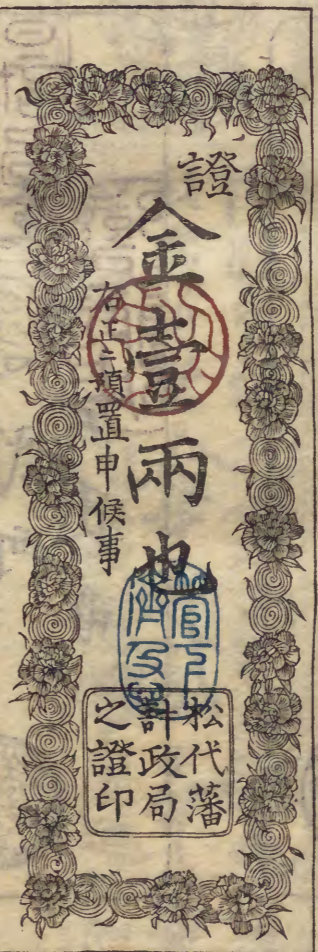 證
金壹兩也
右正ニ預置申候事
管下
濟急
松代藩
計政局
之證印